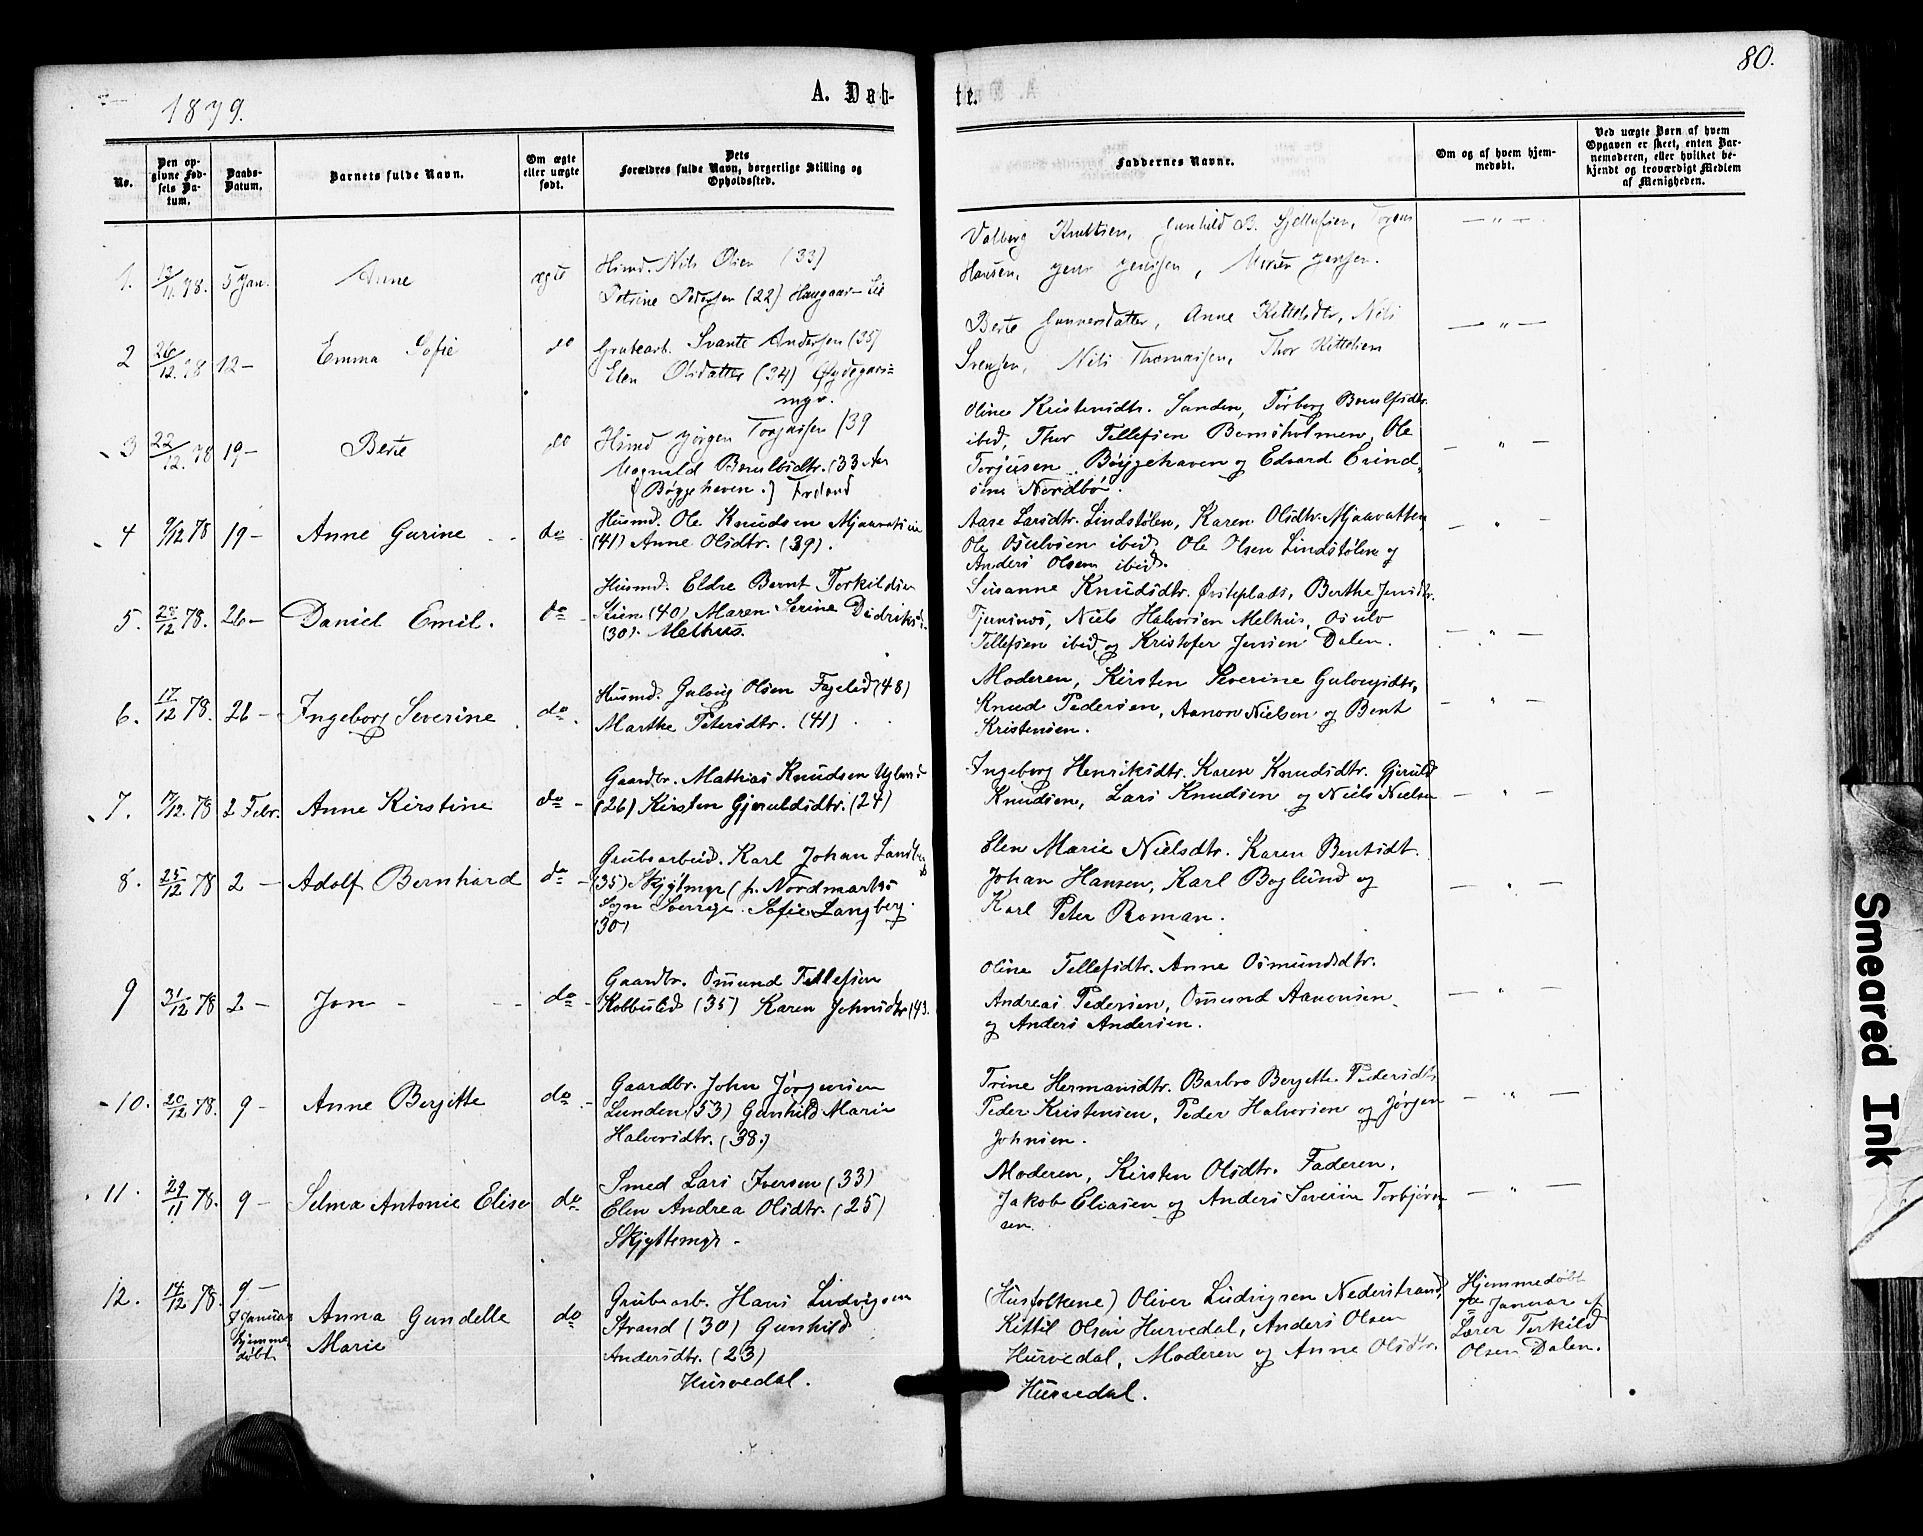 80.
1879.
A. Døb-
te.
No.
Den op-
givne Fød-
sels Da-
tum.
Daabs-
Datum.
Barnets fulde Navn.
Om ægte
eller uægte
født.
Dets
Forældres fulde Navn, borgerlige Stilling og
Opholdssted.
Faddernes Navne.
Om og af hvem hjem-
medøbt.
Ved uægte Børn af hvem
Opgaven er skeet, enten Bar-
nemoderen, eller hvilket be-
kjendt og troværdigt Medlem
af Menigheden.
1. 13/11 78. 5 Jan. Anne ægte
Husmd. Nils Olsen (33)
Petrine Pedersen (22)
Valborg Knutsen, Gunhild B.
Hansen, Jens Jensen,
— " —
2 26/12 78 12 — Emma Sofie do
Grubearb. Svante Andersen (35)
Elen Olsdatter (34)
myr.
Berte Gunnersdatter, Anne Kittelsdtr, Nils
Svensen, Nils Thomassen, Thor Kittelsen
— " —
3 22/12 78 19 — Berte do
Husmd Jørgen Torjussen (39
(33 Aar
(Bøggehaven.)
Oline Kristensdtr. Sanden, Torborg
ibid, Thor Tellefsen Bomsholmen, Ole
Torjusen Bøggehaven og Edvard Erind-
sen Nordbø.
— " —
4 9/12 78 19 — Anne Gurine do
Husmd. Ole Knudsen
(41) Anne Olsdtr. (39).
Aase Larsdtr. Lindstølen, Karen Olsdtr. Mjaavatten
Ole Osulvsen ibid, Ole Olsen Lindstølen og
Anders Olsen ibid.
— " —
5. 28/12 78. 26 — Daniel Emil. do
Husmd. Eldre Bernt Torkildsen
Stien (40) Maren Serine Didriks:
(30). Melhus.
Susanne Knudsdtr. Østeplads, Berthe
Niels Halvorsen Melhus, Osulv
Tellefsen ibid, og Kristofer Jensen Dalen.
— " —
6. 17/12 78. 26 — Ingeborg Severine do
Husmd. Gulvig Olsen Fagelid (48)
Marthe Petersdtr. (41)
Moderen, Kirsten Severine
Knud Pedersen, Aanon Nielsen og Bent
Kristensen.
— " —
7. 78 2 Febr. Anne Kirstine do
Gaardbr. Mathias Knudsen Ugland
(26) Kirsten Gjeruldsdtr. (24)
Ingeborg Henriksdtr. Karen Knudsdtr. Gjeruld
Knudsen, Lars Knudsen og Niels Nielsen
— " —
8. 25/12 78 2 — Adolf Bernhard do
Grubearbeid. Karl Johan
(35) Skjytmyr (f. Nordmarks
Sogn Sverige. Sofie Langberg.
(30)
Elen Marie Nielsdtr. Karen Bentsdt.
Johan Hansen, Karl Boglund og
Karl Peter Roman.
— " —
9 31/12 78 2 — Jon do
Gaardbr. Omund Tellefsen
Kobbuslid (35) Karen Johnsdtr (43.
Oline Tellefsdtr. Anne Osmundsdtr.
Andreas Pedersen, Omund Aanonsen
og Anders Andersen.
— " —
10. 20/12 78. 9 — Anne Berjitte do
Gaardbr. John Jørgensen
Lunden (53) Gunhild Marie
Halvorsdtr. (38.)
Trine Hermansdtr. Barbro Berjitte Pedersdtr
Peder Kristensen, Peder Halvorsen og Jørgen
Johnsen.
— " —
11. 29/11 78. 9 — Selma Antonie Elise do
Smed Lars Iversen (33)
Elen Andrea Olsdtr. (25)
Skjyttemyr
Moderen, Kirsten Olsdtr. Faderen,
Jakob Eliasen og Anders Severin Torbjørn-
sen.
— " —
12. 14/12 78. 9 —
7 Januar
hjemme-
døbt
Anna Gundelle
Marie
do
Grubearb. Hans Ludvigsen
Strand (30) Gunhild
Andersdtr. (23)
Hurvedal.
(Husfolkene) Oliver Ludvigsen Nederstrand,
Kittil Olsen Hurvedal, Anders Olsen
Hurvedal, Moderen og Anne Olsdtr.
Hurvedal.
Hjemmedøbt
7de Januar af
Lærer Terkild
Olsen Dalen.
Smeared Ink